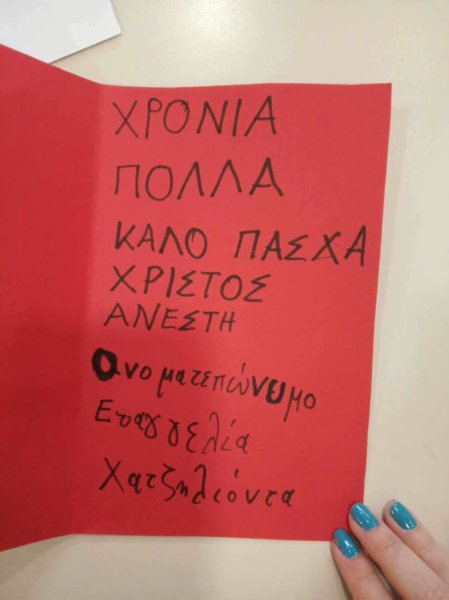 ΧΡΟΝΙΑ
ΠΟΛΛΑ
ΚΑΛΟ ΠΑΣΧΑ
ΧΡΙΣΤΟΣ
ΑΝΕΣΤΗ
Ονοματεπώνυμο
Ευαγγελία
Χατζηλιόντα